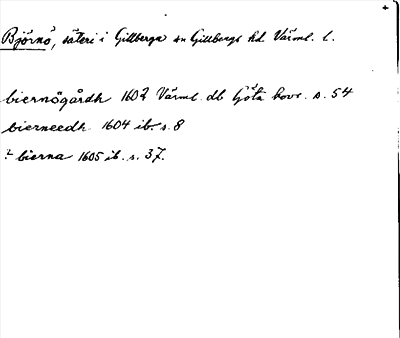 Björnö, säteri i Gillberga sn Gillbergs hd Värml. l.
biernögårdh 1602 Värml. db Göta hovr. s. 54
bierneedh 1604 ib. s. 8
bierna 1605 ib. s. 37.